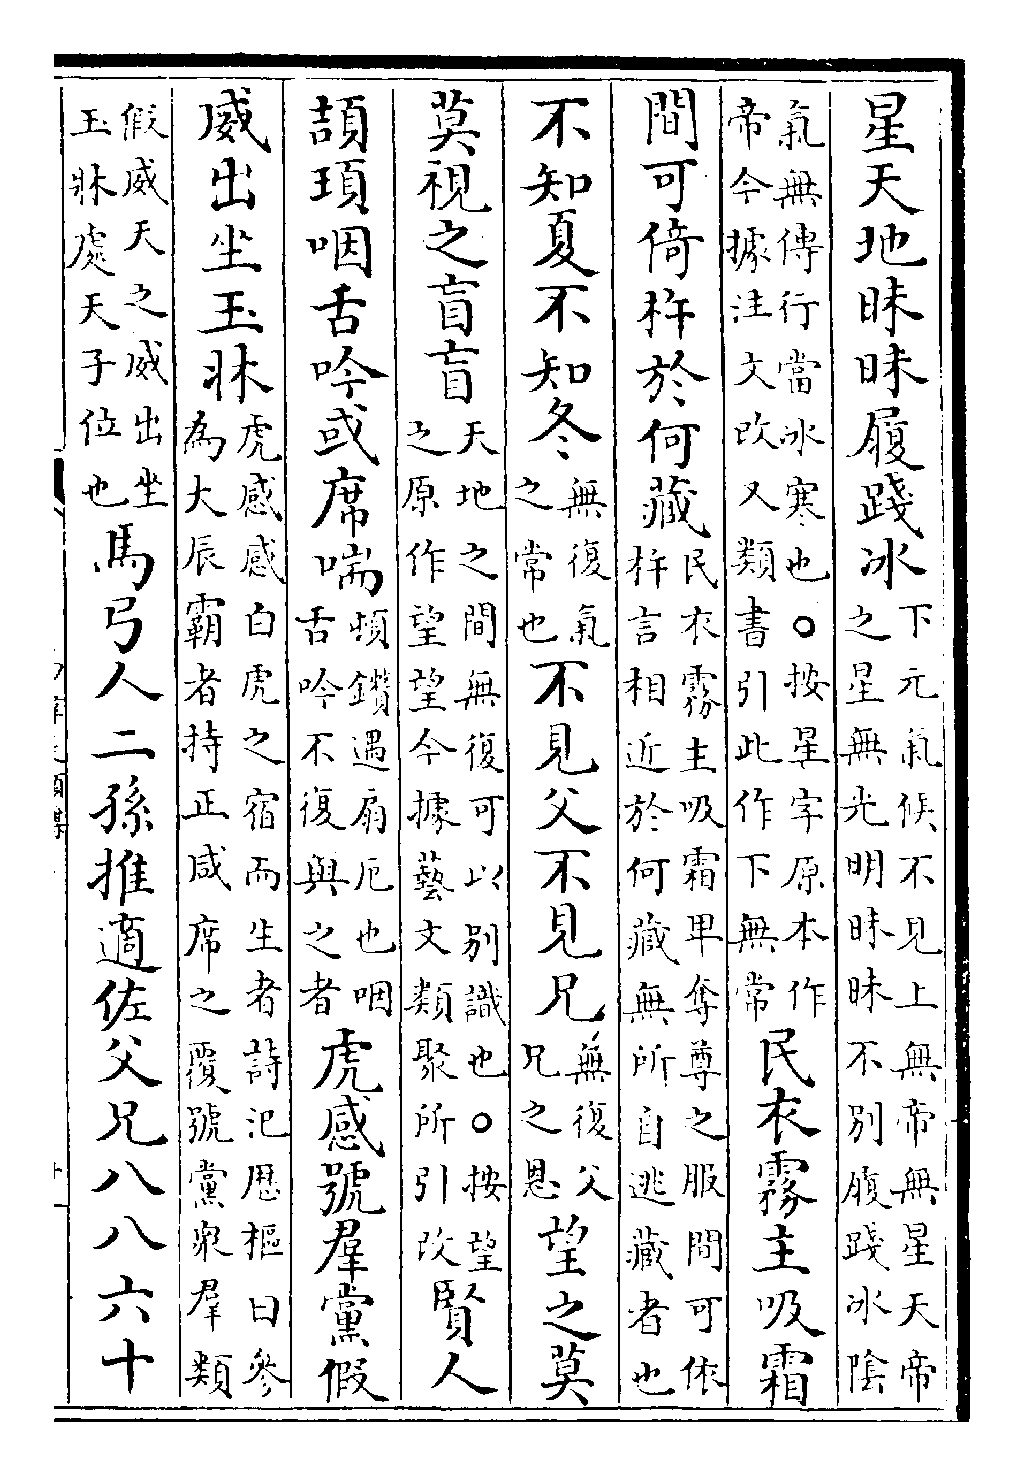 星天地昧昧履踐冰下元氣候不見上無帝無星天帝
之星無光明昧昧不別履踐冰陰
氣無傳行當冰寒也○按星字原本作
帝今據注文改又類書引此作下無常民衣霧主吸霜
間可倚杵於何藏民衣霧主吸霜卑奪尊之服間可依
杵言相近於何藏無所自逃藏者也
不知夏不知冬無復氣
之常也不見父不見兄無復父
兄之恩望之莫
莫視之盲盲天地之間無復可以別識也○按望
之原作望望今據藝文類聚所引改賢人
頡頊咽舌吟或席喘頓鑽遇扇厄也咽
舌吟不復與之者虎感號羣黨假
威出坐玉牀虎感感白虎之宿而生者詩汜歷樞曰參
為大辰霸者持正咸席之覆號黨衆羣類
假威天之威出坐
玉牀處天子位也馬弓人二孫推適佐父兄八八六十